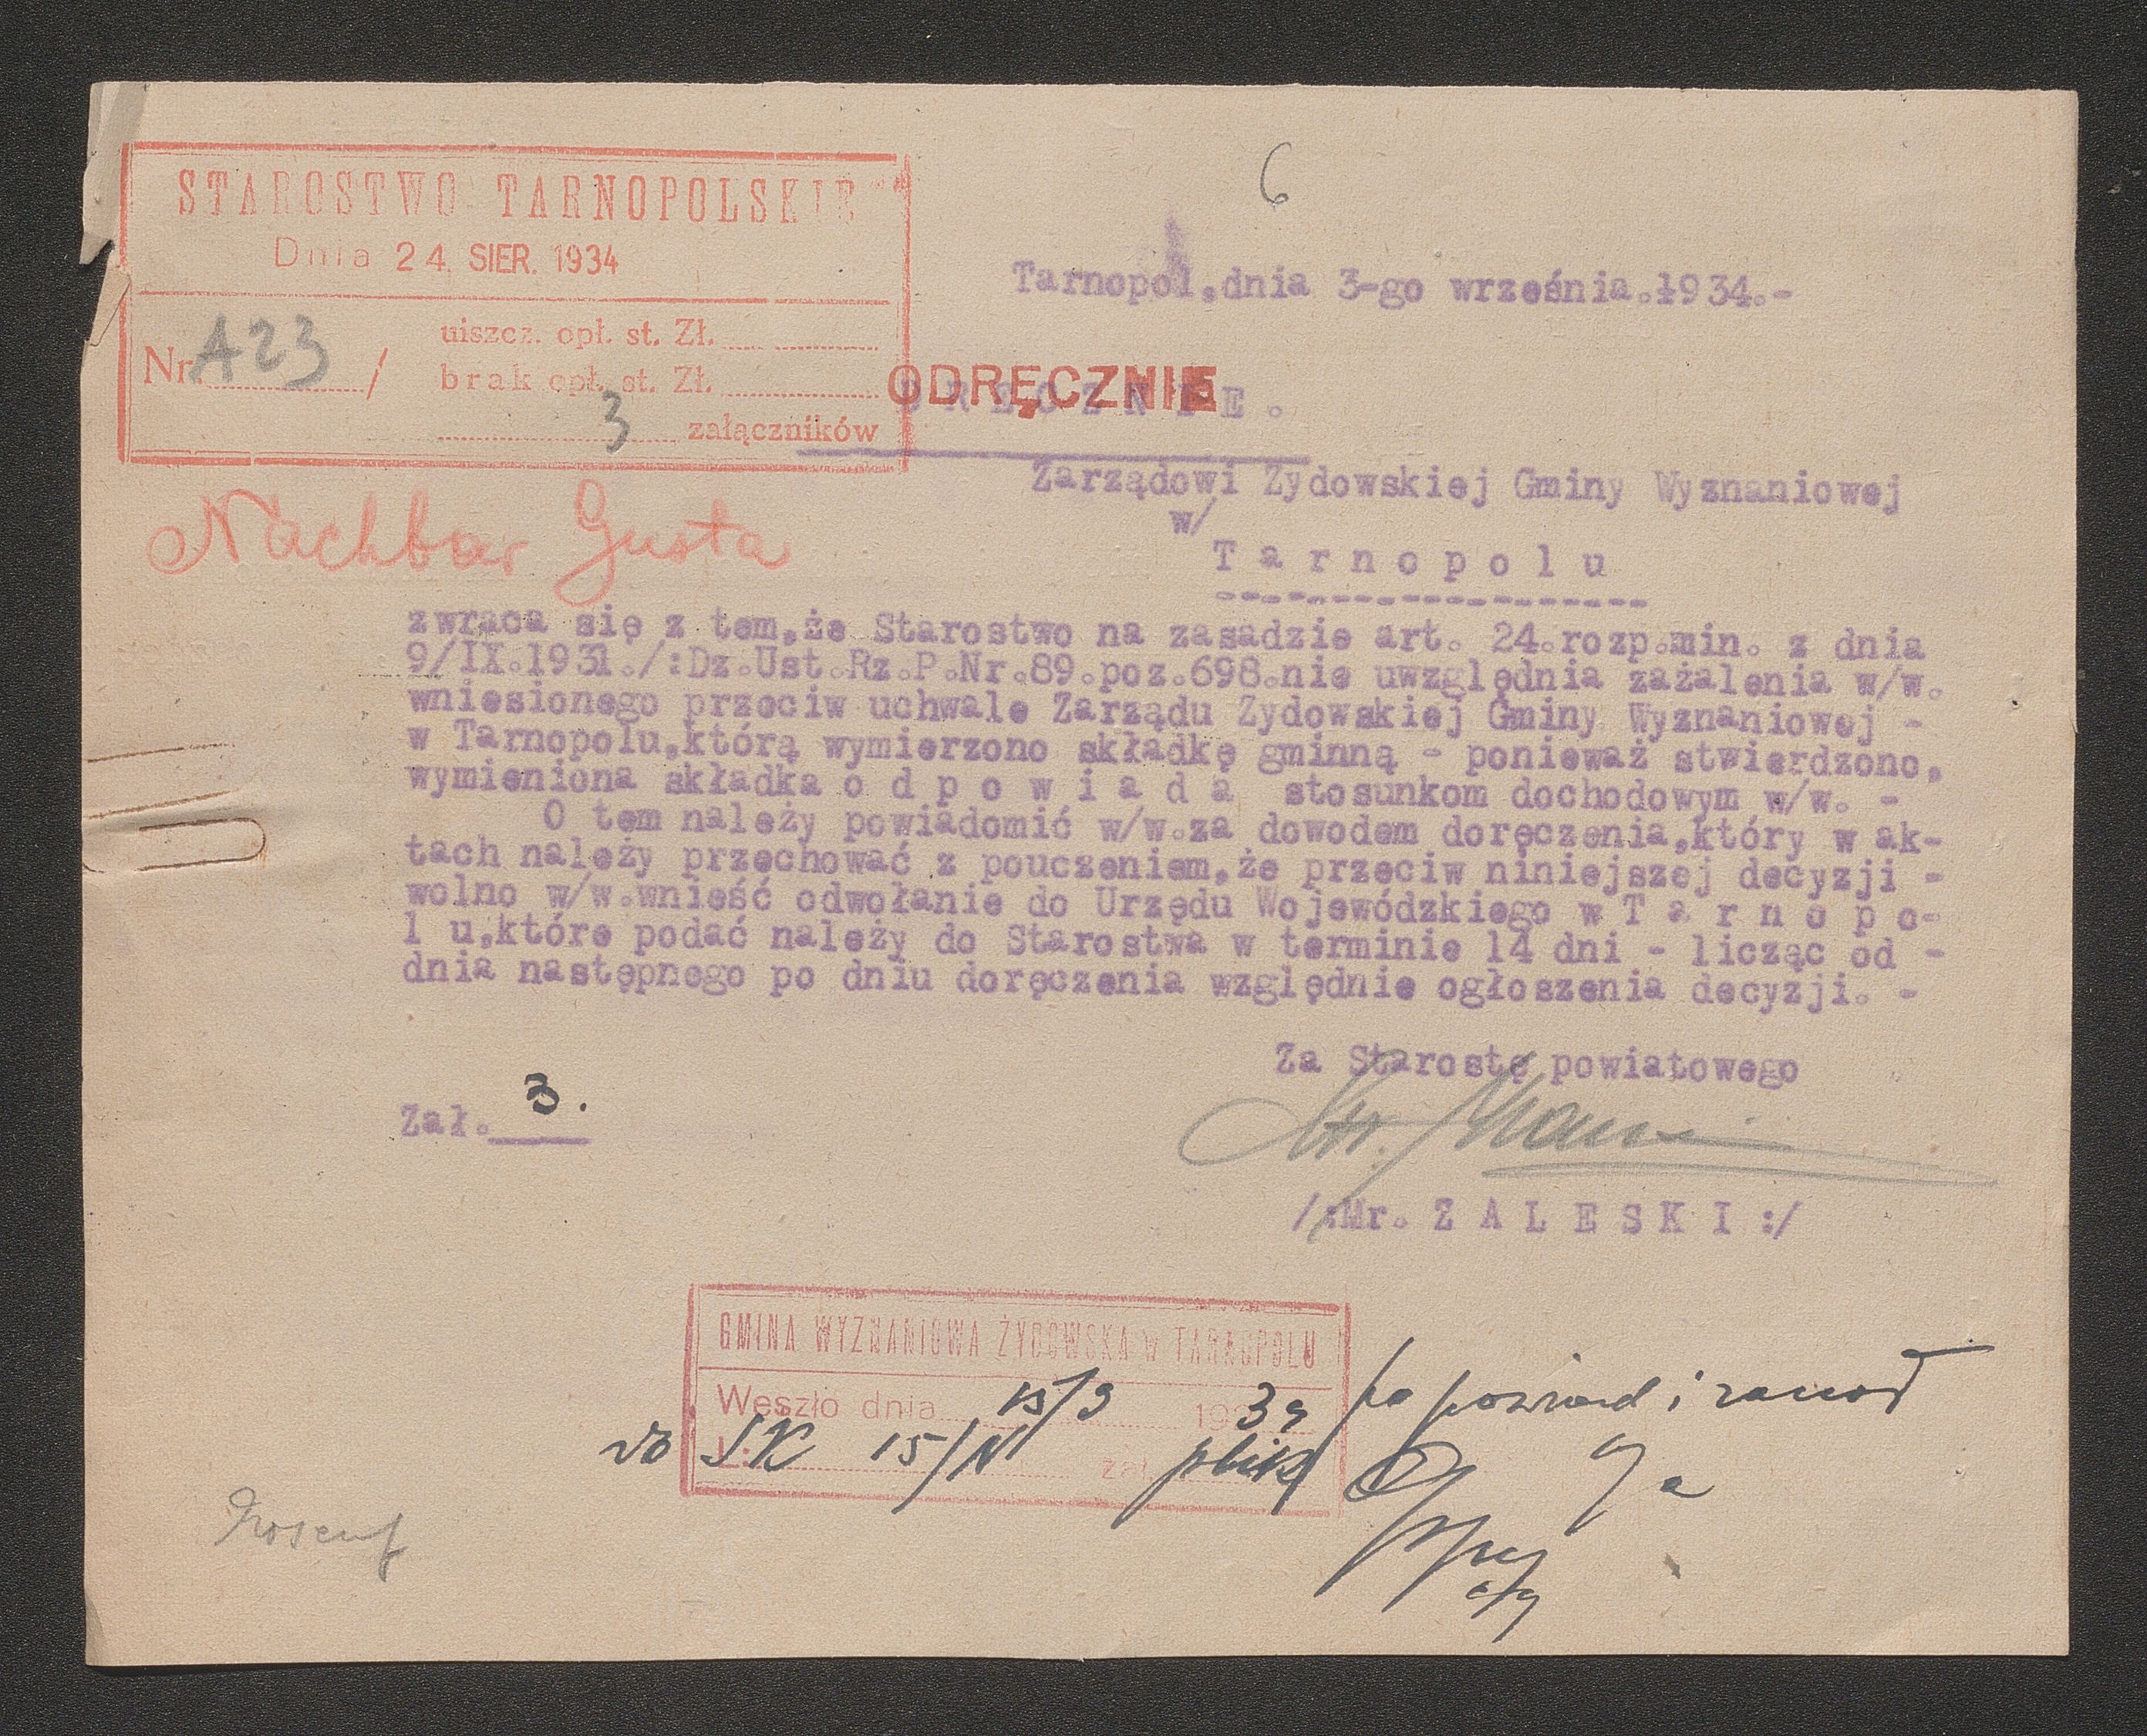 6
STAROSTWO TARNOPOLSKIE
Dnia 24. SIER. 1934
Nr. A23 /
uiszcz. opł. st. Zł.
brak opł. st. Zł.
3 załączników
Tarnopol,dnia 3-go września.1934.-
ODRĘCZNIE
Nachbar Gusta
Zarządowi Żydowskiej Gminy Wyznaniowej
w/
T a r n o p o l u
zwraca się z tem,że Starostwo na zasadzie art. 24.rozp.min. z dnia
9/IX.1931./:Dz.Ust.Rz.P.Nr.89.poz.698.nie uwzględnia zażalenia w/w.
wniesionego przeciw uchwale Zarządu Żydowskiej Gminy Wyznaniowej -
w Tarnopolu,którą wymierzono składkę gminną - ponieważ stwierdzono,
wymieniona składka o d p o w i a d a stosunkom dochodowym w/w. -
O tem należy powiadomić w/w.za dowodem doręczenia,który w ak-
tach należy przechować z pouczeniem,że przeciw niniejszej decyzji -
wolno w/w.wnieść odwołanie do Urzędu Wojewódzkiego w T a r n o p o-
l u,które podać należy do Starostwa w terminie 14 dni - licząc od -
dnia następnego po dniu doręczenia względnie ogłoszenia decyzji. -
Za Starostę powiatowego
Zał. 3.
/:Mr. Z A L E S K I :/
GMINA WYZNANIOWA ŻYDOWSKA w TARNOPOLU
Weszło dnia 15/9 1934
do SK 15/N zał.